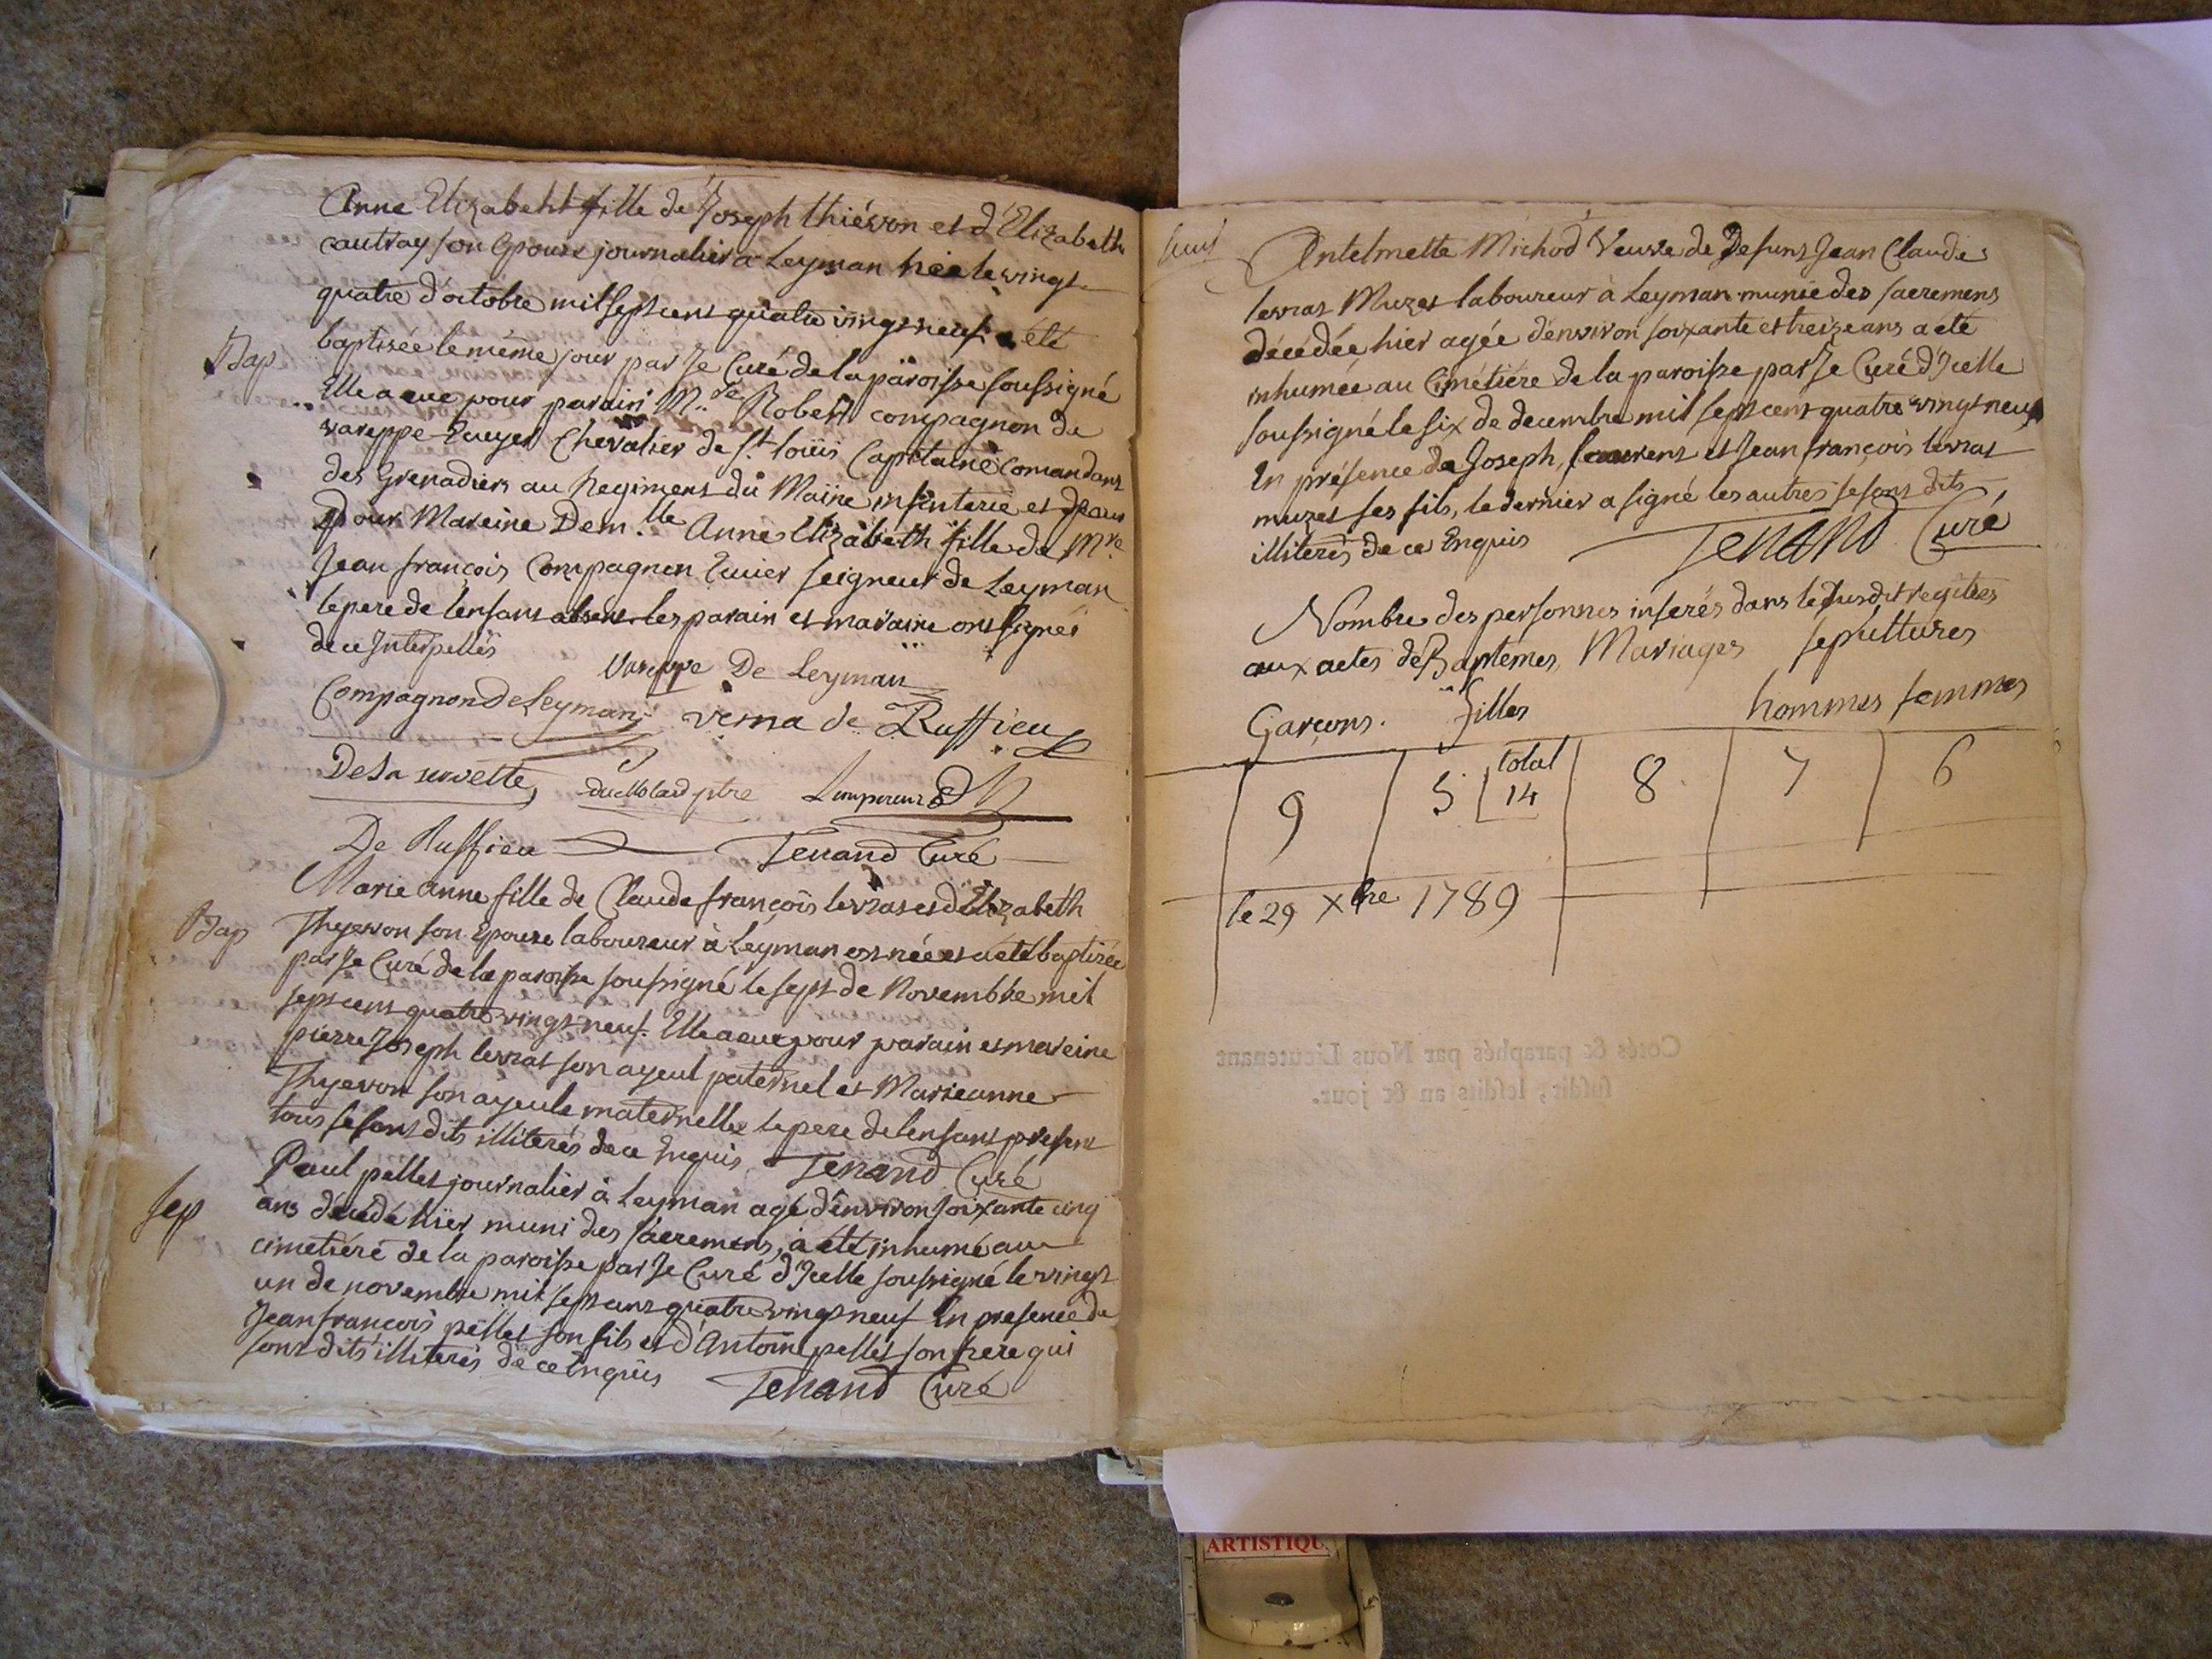 Anne Elizabeht fille de Joseph thiévon et d'Elizabeth
cautray son Epouse journalier a Leyman née le vingt
quatre d'octobre mil sept cent quatre vingt neuf a été
Bap baptisée le même jour par Je Curé de la paroisse soussigné
Elle a eue pour parain M.re Robert compagnon de
vareppe Ecuyer Chevalier de St. loüis Capitaine Comandant
des Grenadiers au Regiment du Maine infenterie et
pour Mareine Dem.lle Anne Elizabeth fille de Mre
Jean françois Compagnon Ecuier seigneur de Leyman
le pere de l'enfant absent les parain et maraine ont signés
de ce Interpellés
Vareppe De Leyman
Compagnon De Leyman verna de Ruffieu
De la servette duMolard ptre
De Ruffieu Tenand Curé
Marie anne fille de Claude françois levrat et d'Elizabeth
Bap Thyevon son Epouse laboureur à Leyman est née et a été baptisée
par Je Curé de la paroisse soussigné le sept de Novembre mil
sept cent quatre vingt neuf. Elle a eue pour parain et mareine
pierre Joseph levrat son ayeul paternel et Marieanne
Thyevon son ayeule maternelle le pere de l'enfant present
tous se sont dits illiterés de ce Enquis Tenand Curé
Sep Paul pellet journalier à Leyman agé d'environ soixante cinq
ans décédé hier muni des sacremens, a été inhumé au
cimetiére de la paroisse par Je Curé d'Icelle soussigné le vingt
un de novembre mil sept cent quatre vingt neuf En presence de
Jean françois pellet son fils et d'Antoine pellet son frere qui
sont dits illiterés de ce Enquis Tenand Curé
Antelmette Michod Veuve de Defunt Jean Claude
levrat Muzet laboureur à Leyman munie des sacremens
décédée hier agée d'environ soixante et treize ans a été
inhumée au Cimétiére de la paroisse par Je Curé d'Icelle
soussigné le six de decembre mil sept cent quatre vingt neuf
En présence de Joseph, laurent et Jean françois levrat
muzet ses fils, le dernier a signé les autres se sont dits
illiterés de ce Enquis Tenand Curé
Nombre des personnes inserés dans le susdit regitres
aux actes de Baptemes Mariages sepultures
Garçons. filles hommes femmes
9 5 total 14 8 7 6
le 29 xbre 1789
Cotés & paraphés par Nous Lieutenant
susdit, lesdits an & jour.
ARTISTIQU